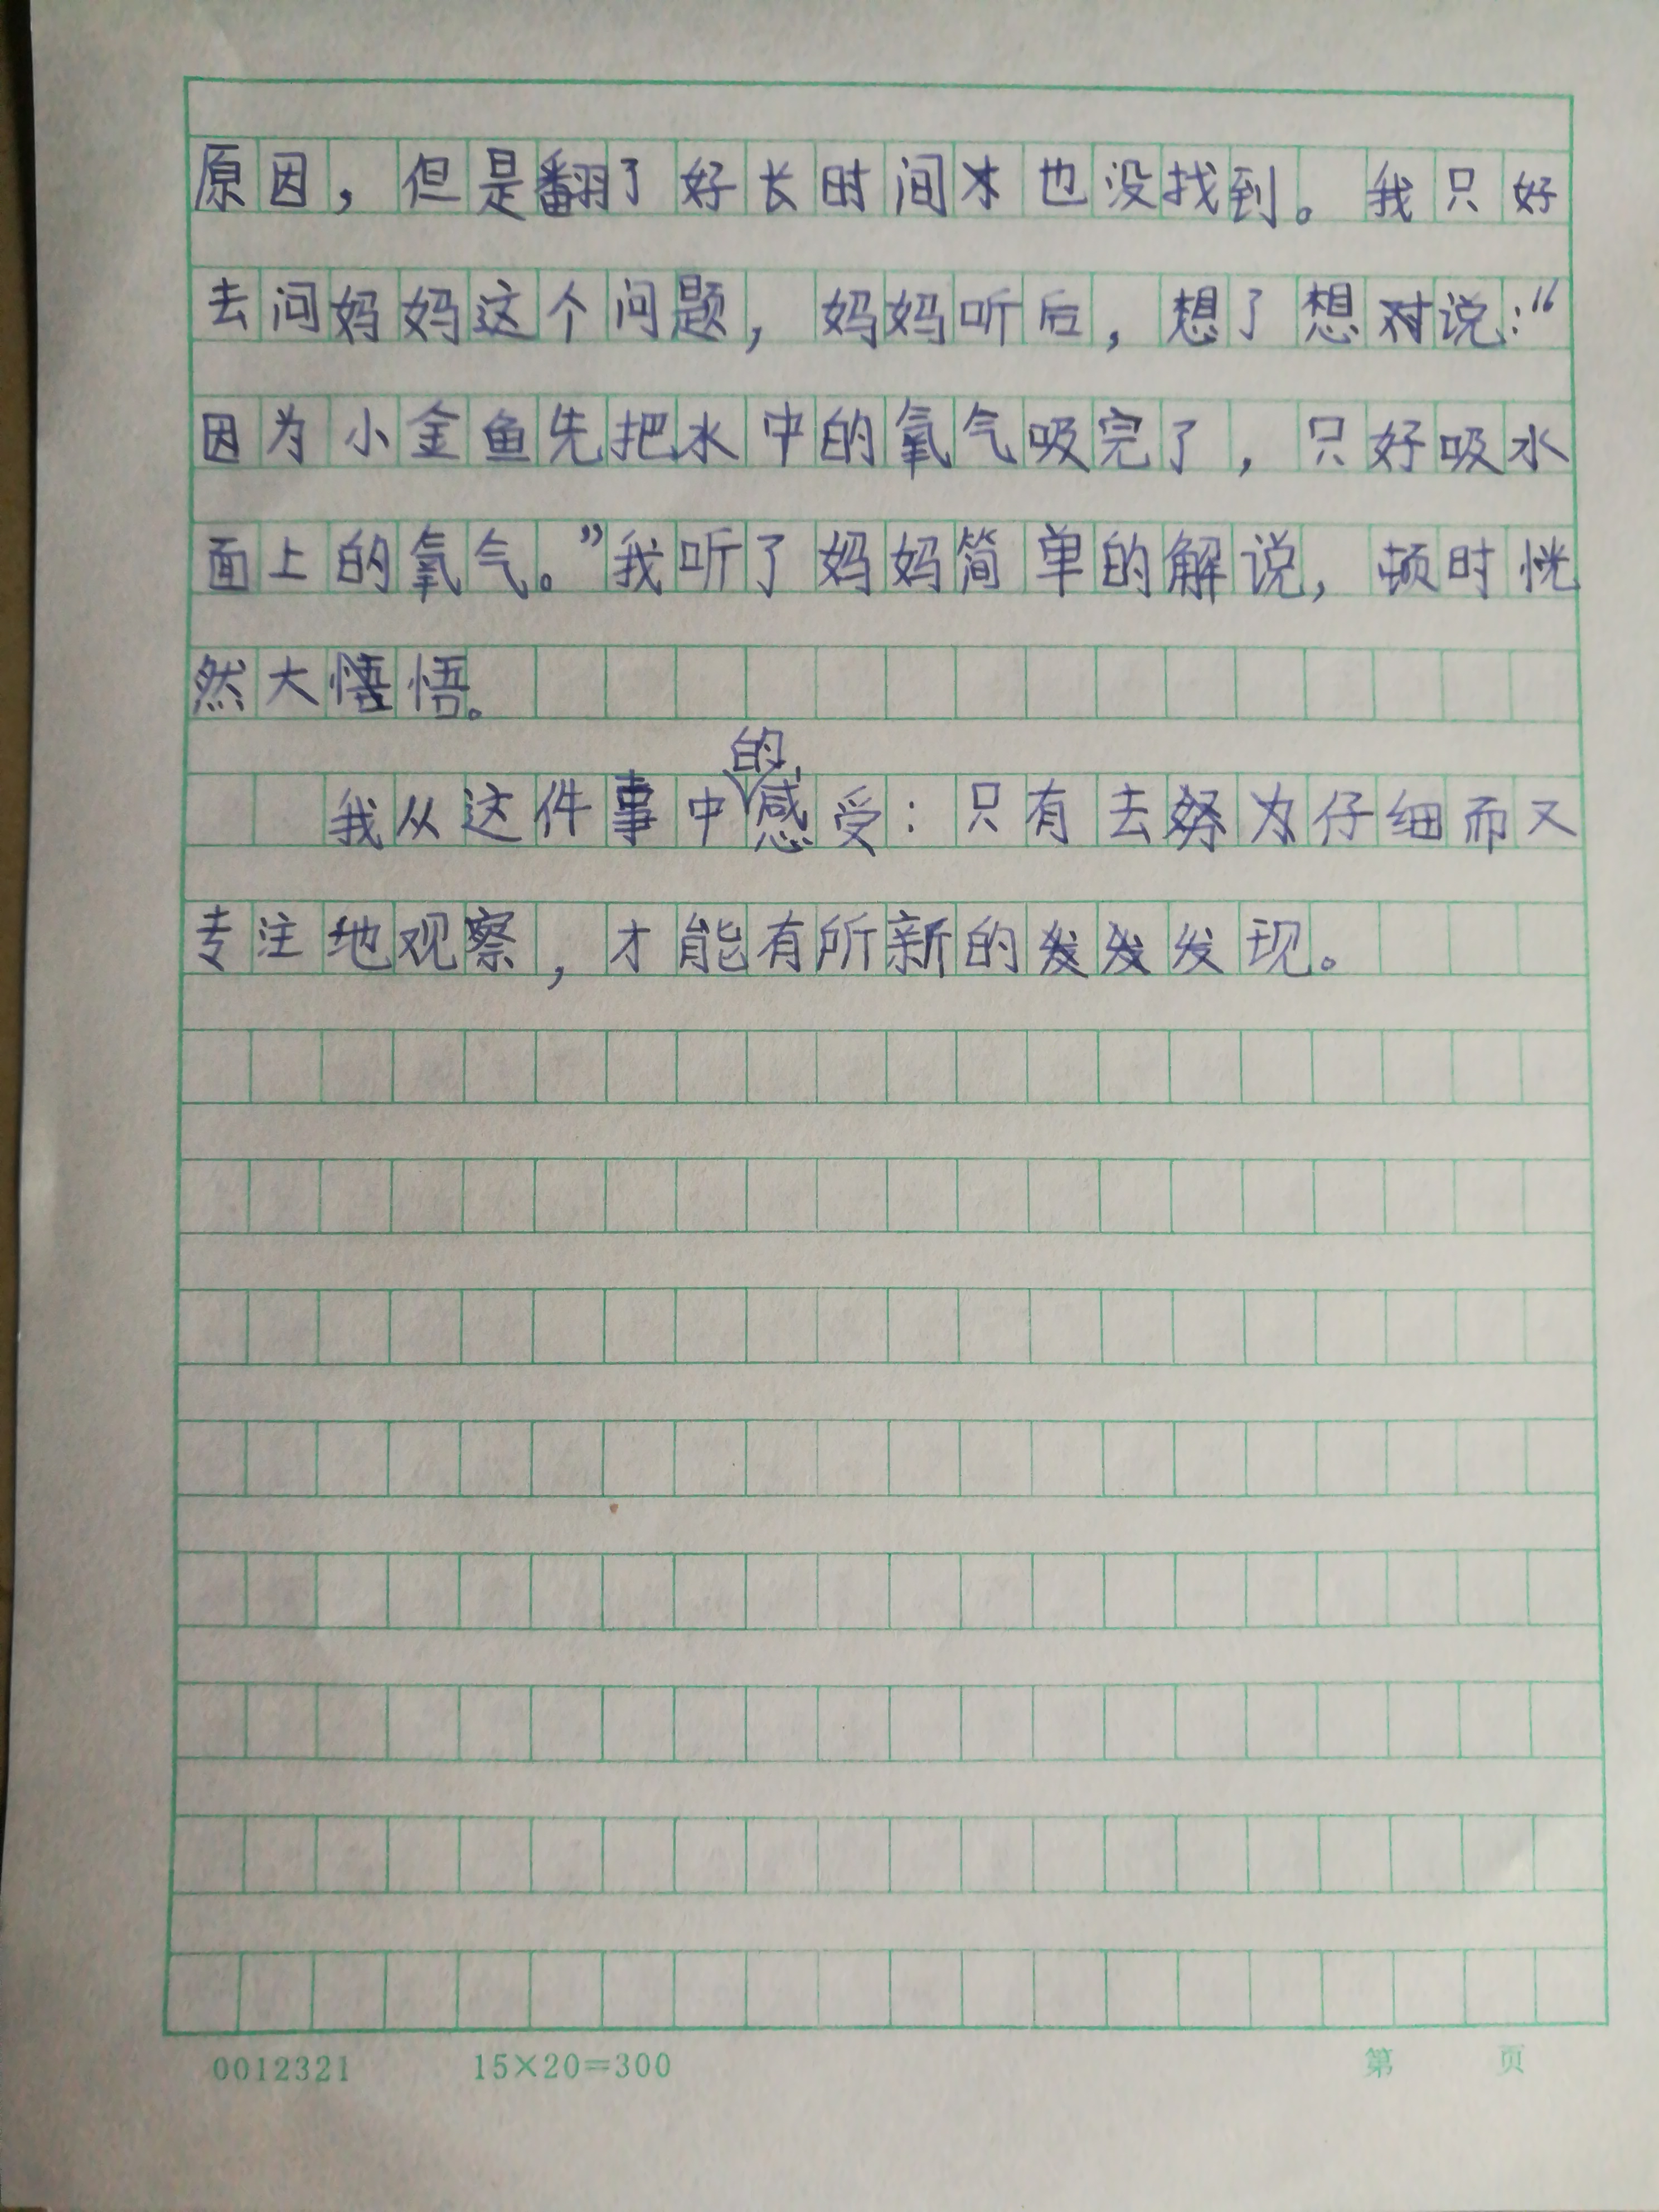 原因，但是翻了好长时间也没找到。我只好
去问妈妈这个问题，妈妈听后，想了想说：“
因为小金鱼先把水中的氧气吸完了，只好吸水
面上的氧气。”我听了妈妈简单的解说，顿时恍
然大悟。
的
我从这件事中感受：只有去努为仔细而又
专注地观察，才能有所新的发现。
0012321 15×20=300 第 页